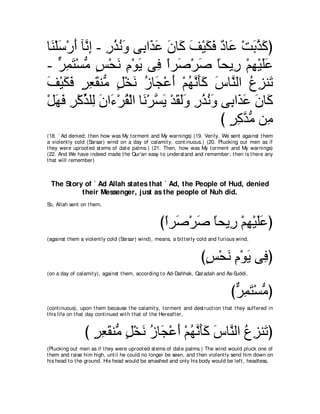 (كَذَّبَتْ عَادٌ فَكَيْفَ كَانَ عَذَابِى وَنُذُرِ - إِنَّآ أَرْسَلْنَا
عَلَيْهِمْ رِيحاً صَرْصَراً فِى يَوْمِ نَحْسٍ مُّسْتَمِرٍّ -
تَنزِعُ النَّاسَ كَأَنَّهُمْ أَعْجَازُ نَخْلٍ مُّنقَعِرٍ فَكَيْفَ
كَانَ عَذَابِى وَنُذُرِ وَلَقَدْ يَسَّرْنَا الْقُرْءَانَ لِلذِّكْرِ فَهَلْ
مِن مُّدَّكِرٍ )
(18. `Ad denied; then how was My torment and My warnings) (19. Verily, We sent against them
a violently cold (Sarsar) wind on a day of calamity, continuous.) (20. Plucking out men as if
they were uprooted stems of date palms.) (21. Then, how was My torment and My warnings)
(22. And We have indeed made the Qur'an easy to understand and remember; then is there any
that will remember)
The Story of ` Ad Allah states that ` Ad, the People of Hud, denied
their Messenger, just as the people of Nuh did.
So, Allah sent on them,
(رِيحاً صَرْصَراً عَلَيْهِمْ)
(against them a violently cold (Sarsar) wind), means, a bitterly cold and furious wind,
(فِى يَوْمِ نَحْسٍ)
(on a day of calamity), against them, according to Ad-Dahhak, Qatadah and As-Suddi,
(مُّسْتَمِرٍّ)
(continuous), upon them because the calamity, torment and destruction that they suffered in
this life on that day continued with that of the Hereafter,
(تَنزِعُ النَّاسَ كَأَنَّهُمْ أَعْجَازُ نَخْلٍ مُّنقَعِرٍ )
(Plucking out men as if they were uprooted stems of date palms.) The wind would pluck one of
them and raise him high, until he could no longer be seen, and then violently send him down on
his head to the ground. His head would be smashed and only his body would be left, headless,